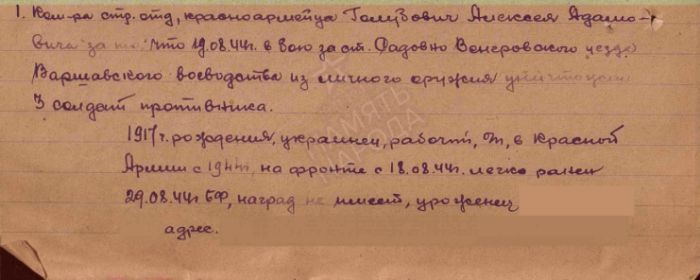 1. Ком-ра стр. отд, красноармейца Голубович Алексея Адамо-
вича за то: что 19.08.44г. в бою за ст. Садовно Венгеровского уезда
Варшавского воеводства из личного оружия уничтожил
3 солдат противника.
1917 г. рождения, украинец, рабоч., в Красной
Армии с 1944г, на фронте с 18.08.44г. легко ранен
29.08.44г БФ, наград не имеет, уроженец
адрес.
ПАМЯТЬ
НАРОДА